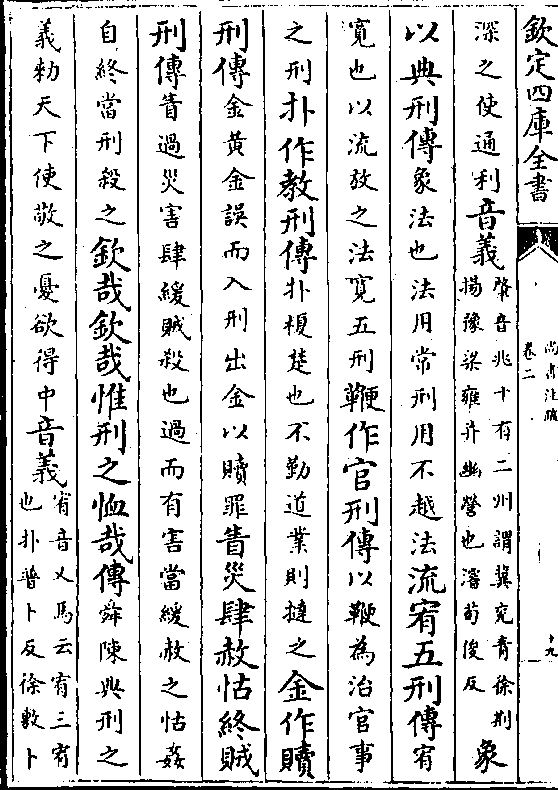 欽定四庫全書
尚書注疏
卷二
十九
深之使通利音義肇音兆十有二州謂冀兗青徐荆
揚豫梁雍并幽營也濬荀俊反象
以典刑傳象法也法用常刑用不越法流宥五刑傳宥
寛也以流放之法寛五刑鞭作官刑傳以鞭為治官事
之刑扑作教刑傳扑榎楚也不勤道業則撻之金作贖
刑傳金黄金誤而入刑出金以贖罪眚災肆赦怙終賊
刑傳眚過災害肆緩賊殺也過而有害當緩赦之怙姦
自終當刑殺之欽哉欽哉惟刑之恤哉傳舜陳典刑之
義勑天下使敬之憂欲得中音義宥音又馬云宥三宥
也扑普卜反徐敷卜